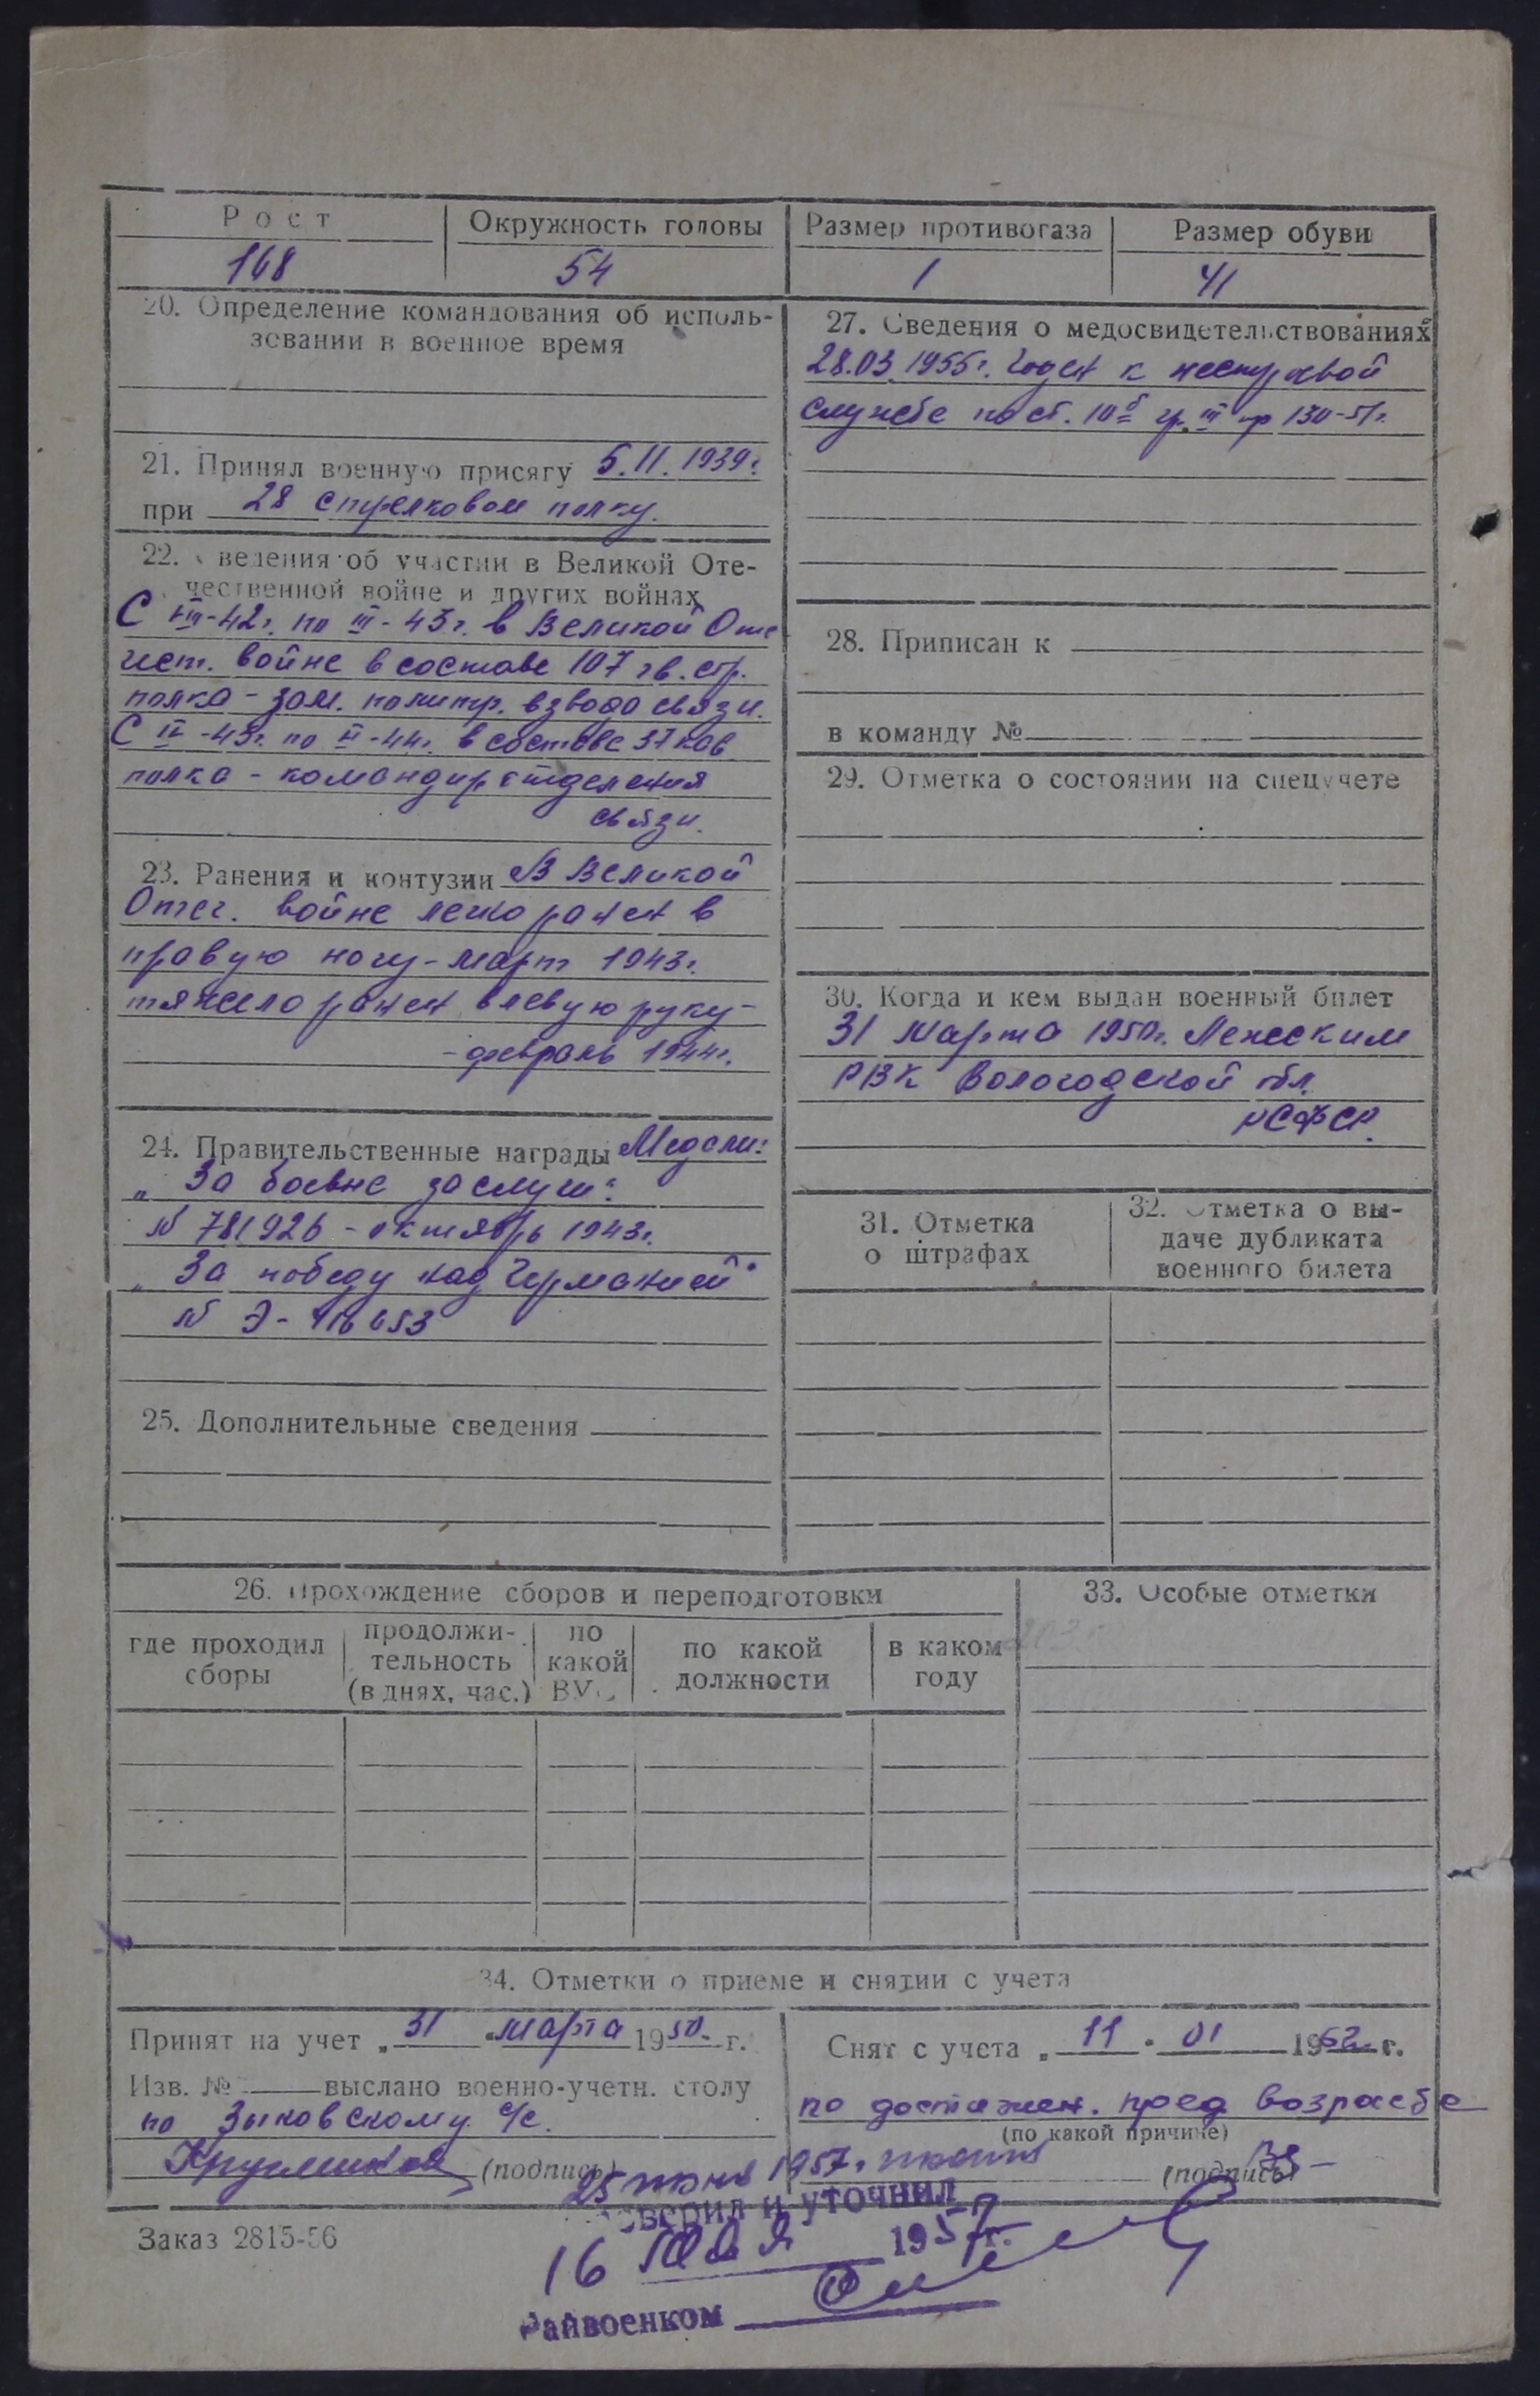 Рост
Окружность головы
Размер противогаза
Размер обуви
168
54
1
41
20. Определение командования об исполь-
зовании в военное время
21. Принял военную присягу 5.II.1939г.
при 28 стрелковом полку.
22. Сведения об участии в Великой Оте-
чественной войне и других войнах
С VIII-42г. по III-43г. в Великой Оте
чест. войне в составе 107 гв. стр.
полка - зам. политр. взвода связи.
С IV-43г. по II-44г. в составе 37 кав.
полка - командир отделения
связи.
23. Ранения и контузии В Великой
Отеч. войне легко ранен в
правую ногу - март 1943г.
тяжело ранен в левую руку -
- февраль 1944г.
24. Правительственные награды Медали:
"За боевые заслуги"
N 781926 - октябрь 1943г.
"За победу над Германией"
N Э-
25. Дополнительные сведения
27. Сведения о медосвидетельствованиях
28.03.1955г. Годен к нестроевой
службе по ст. 10б гр. III пр 130-51г.
28. Приписан к
в команду №
29. Отметка о состоянии на спецучете
30. Когда и кем выдан военный билет
31 Марта 1950г. Лежским
РВК Вологодской обл.
РСФСР.
31. Отметка
о штрафах
32. Отметка о вы-
даче дубликата
военного билета
26. Прохождение сборов и переподготовки
где проходил
сборы
продолжи-
тельность
(в днях, час.)
по
какой
ВУС
по какой
должности
в каком
году
33. Особые отметки
34. Отметки о приеме и снятии с учета
Принят на учет „31 " марта 1950 г.
Изв. № выслано военно-учетн. столу
по Зыковскому с/с.
(подпись)
Снят с учета „11 " 01 1962 г.
по достижен. пред возрасте
(по какой причине)
(подпись)
25 1957г.
Проверил и уточнил
16 мая 1957г.
Райвоенком
Заказ 2815-56